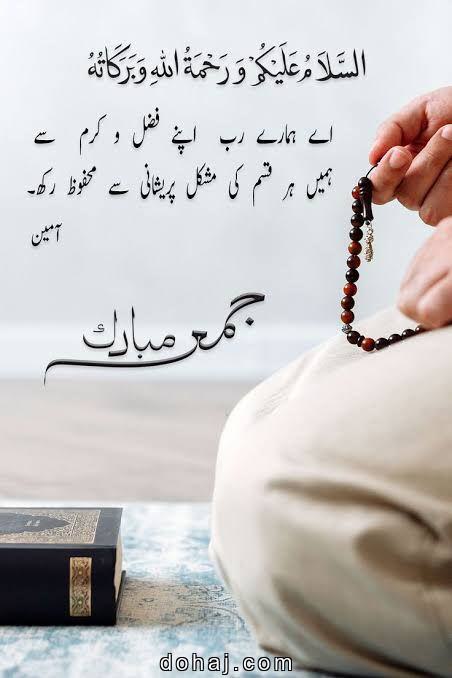 السَّلَامُ عَلَيْكُمْ وَرَحْمَةُ اللهِ وَبَرَكَاتُهُ
اے ہمارے رب اپنے فضل و کرم سے
ہمیں ہر قسم کی مشکل پریشانی سے محفوظ رکھ۔
آمین
جمعہ مبارک
dohaj.com